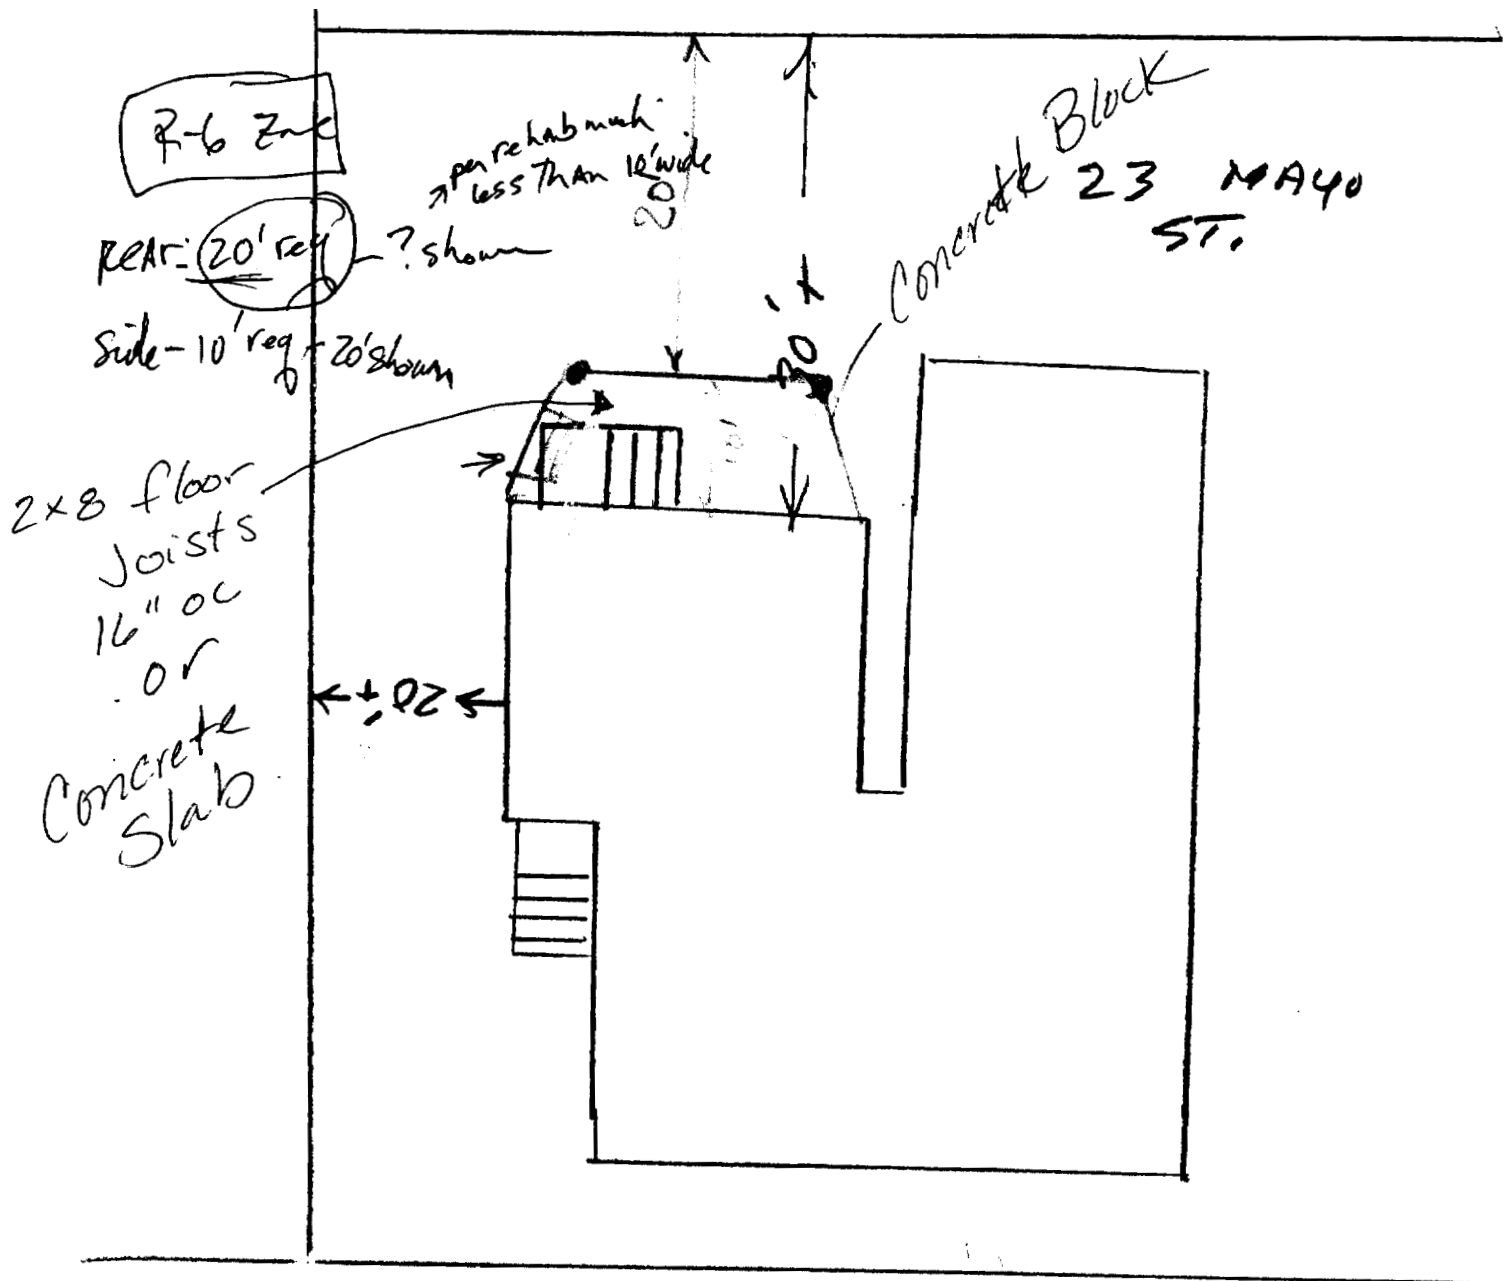 R-6 Zone
per rehab
less than 10' wide
20'
Rear: 20' req - ? shown
side - 10' req - 20' shown
Concrete Block
23 MAYO
ST.
30'±
10'
2x8 floor
Joists
16" oc
or
Concrete
Slab
20'±